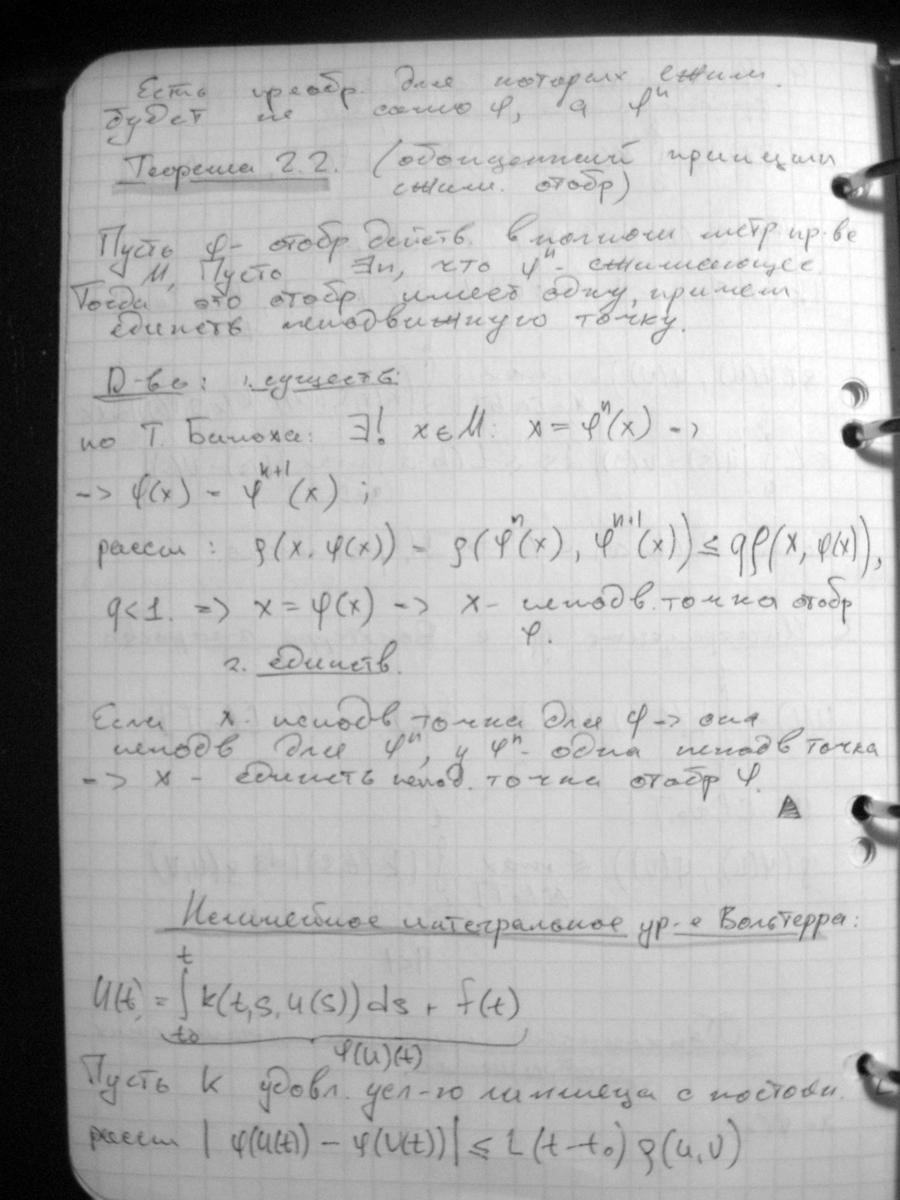 Есть преобр. для которых сжим.
будет не само φ, а φⁿ
Теорема 2.2. (обобщенный принцип
сжим. отобр)
Пусть φ - отобр действ. в полном метр пр-ве
M, Пусть ∃n, что φⁿ - сжимающее
Тогда это отобр имеет одну, причем
единств неподвижную точку.
D-во: 1. существ:
по Т. Банаха: ∃! x ∈ M: x = φⁿ(x) ->
-> φ(x) = φⁿ⁺¹(x) ;
рассм : ρ(x, φ(x)) = ρ(φⁿ(x), φⁿ⁺¹(x)) ≤ qρ(x, φ(x)),
q<1. => x = φ(x) -> x - неподв. точка отобр
φ.
2. единств.
Если x - неподв точка для φ -> она
неподв для φⁿ, у φⁿ - одна неподв точка
-> x - единств непод. точка отобр φ.
Нелинейное интегральное ур-е Вольтерра:
U(t) = ∫ₜ₀ᵗ k(t, s, u(s)) ds + f(t)
φ(u)(t)
Пусть k удовл. усл-ю липшеца с постоян. L
рассм | φ(u(t)) - φ(v(t)) | ≤ L (t - t₀) ρ(u, v)